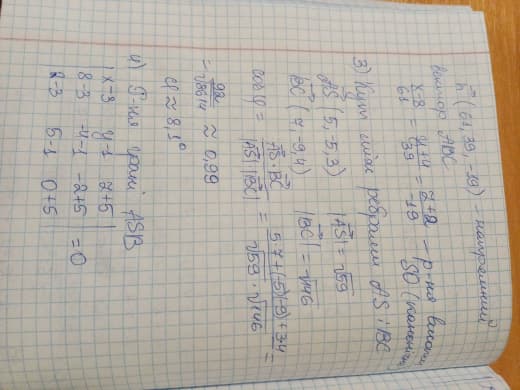 n⃗ (61, 39, -19) - напрямний
вектор ABC
x-8/61 = y+4/39 = z+2/-19 - р-ня висоти SO (канонічн
3) Кут між ребрами AS i BC
AS⃗ (5, -5, 3) |AS⃗| = √59
BC⃗ (7, -9, 4) |BC⃗| = √146
cos φ = AS⃗ · BC⃗ / |AS⃗| |BC⃗| = 5·7+(-5)(-9)+3·4 / √59 · √146 =
= 92/√8614 ≈ 0,99
φ ≈ 8,1°
4) Р-ня грані ASB
| x-3 y-1 z+5 |
| 8-3 -4-1 -2+5 | = 0
| 2-3 5-1 0+5 |